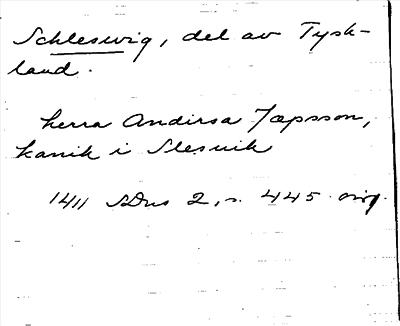 Schleswig, del av Tysk-
land.
herra Andirsa Jæpsson,
kanik i Slesuik
1411 SDns 2, s. 445 orig.